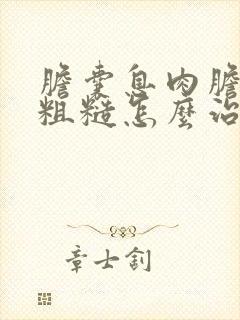 膽囊息肉膽
粗糙怎麼治
章士釗